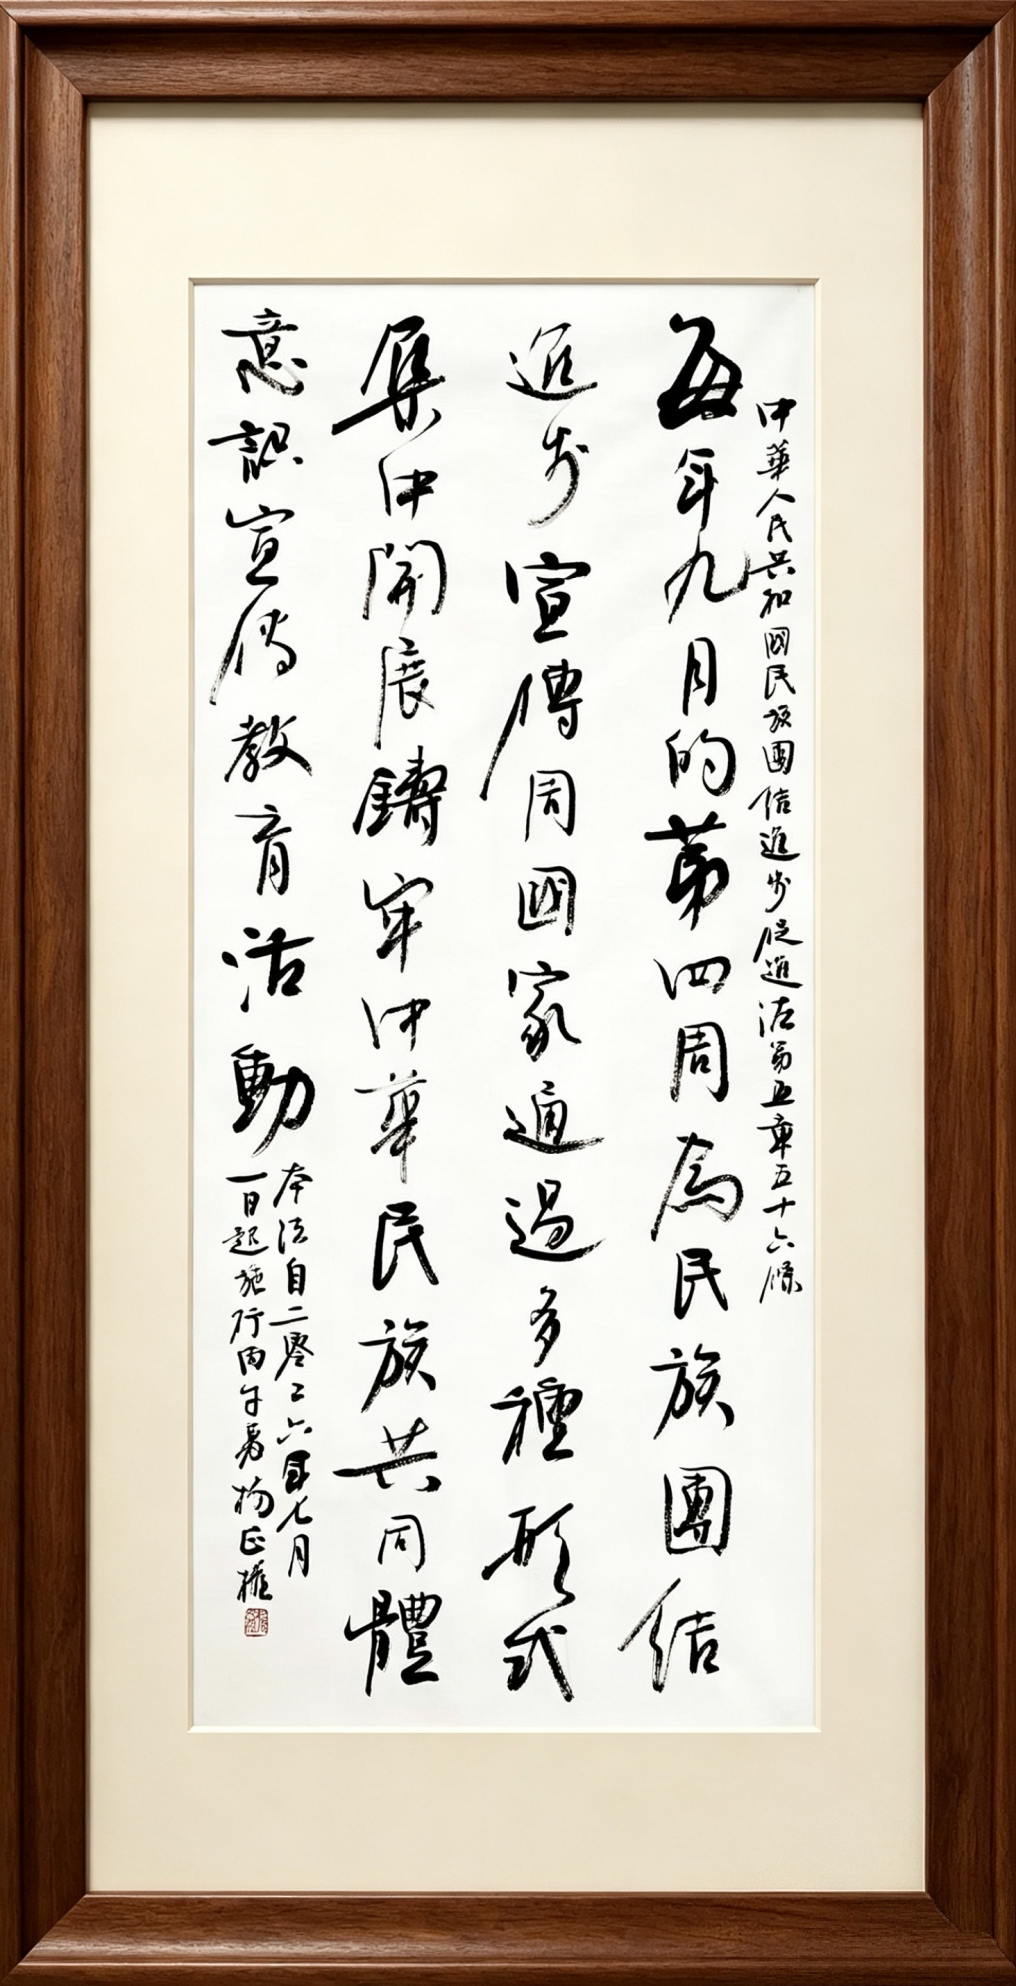 中華人民共和國民族團結進步促進法第五章五十六條
每年九月的第四周為民族團結
進步宣傳周國家通過多種形式
集中開展鑄牢中華民族共同體
意識宣傳教育活動
本法自二零二六年七月
一日起施行丙午夏楊正權